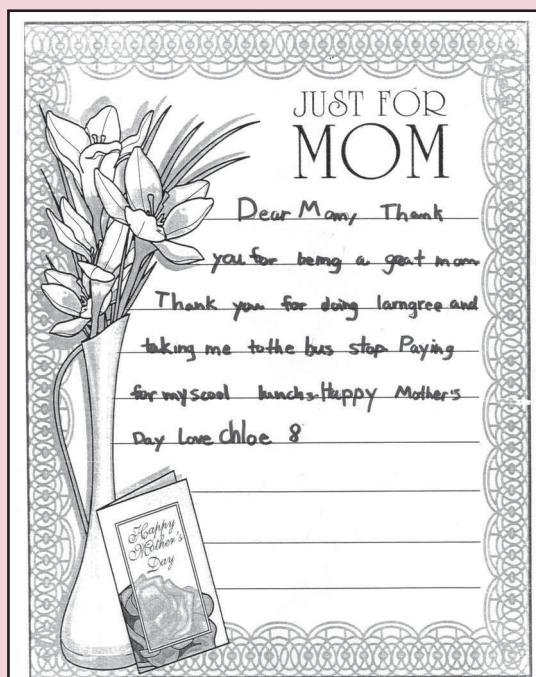 JUST FOR
MOM
Dear Mom, Thank
you for being a geat mom
Thank you for doing larngree and
taking me to the bus stop. Paying
for my scool lunchs. Happy Mother's
Day Love Chloe 8
Happy
Mother's
Day